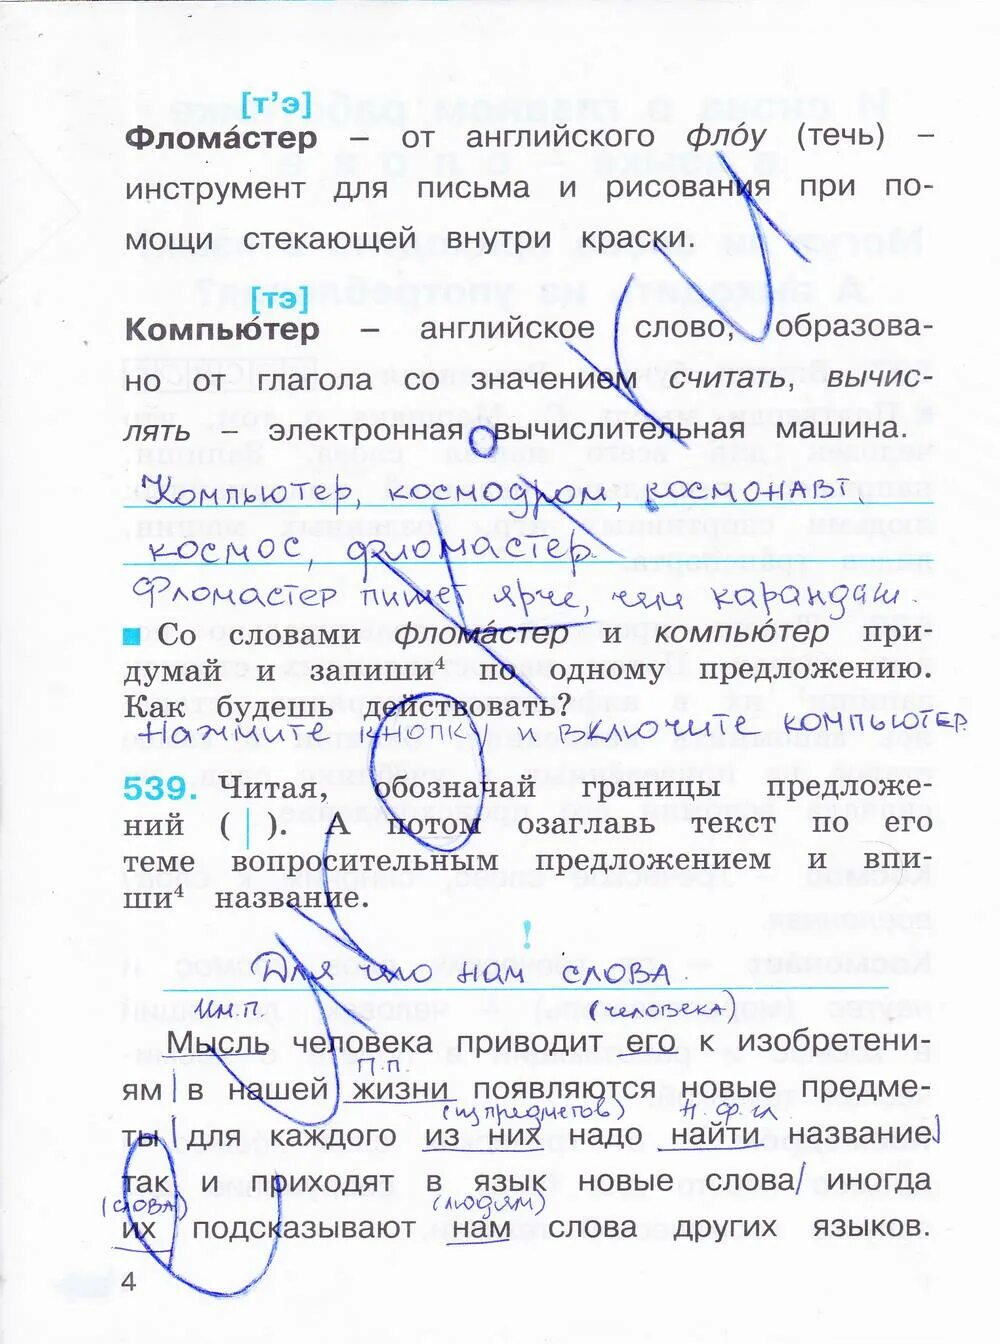 [т’э]
Флома́стер – от английского фло́у (течь) –
инструмент для письма и рисования при по-
мощи стекающей внутри краски.
[тэ]
Компью́тер – английское слово, образова-
но от глагола со значением считать, вычис-
лять – электронная вычислительная машина.
Компьютер, космодром, космонавт,
космос, фломастер.
Фломастер пишет ярче, чем карандаш.
Со словами флома́стер и компью́тер при-
думай и запиши⁴ по одному предложению.
Как будешь действовать?
Нажмите кнопку и включите компьютер.
539. Читая, обозначай границы предложе-
ний ( | ). А потом озаглавь текст по его
теме вопросительным предложением и впи-
ши⁴ название.
!
Для что нам слова
Им.п. (человека)
Мысль человека приводит его к изобретени-
П.п.
ям | в нашей жизни появляются новые предме-
(из предметов) Н.ф.гл.
ты | для каждого из них надо найти название |
так и приходят в язык новые слова | иногда
(слова) (людям)
их подсказывают нам слова других языков.
4